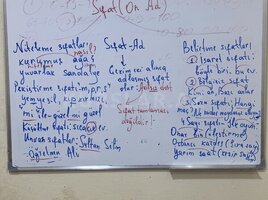 Sıfat (Ön Ad
Niteleme sıfatları
kurumuş ağaç
yuvarlak sandalye
Pekiştirme sıfatı-m,p,r,s
yemyeşil, kıpkırmızı
mi ile-güzel mi güzel
Küçültme sıfatı: sıcacık ev
Unvan sıfatları: Sultan Selim
Öğretmen Ali
Sıfat-Ad
Çekim eki alınca
adlaşmış sıfat
olur.
Sıfat tamlaması
değildir!
Belirtme sıfatları
1 İşaret sıfatı:
böyle biri, bu ev
2 Belgisiz sıfat
Kimi an, Bazı anlar
3 Soru sıfatı: Hangi
4 Sayı sıfatı:
Onar bin (üleştirme
Otuzuncu katılış (sıra say
Yarım saat (kesir say